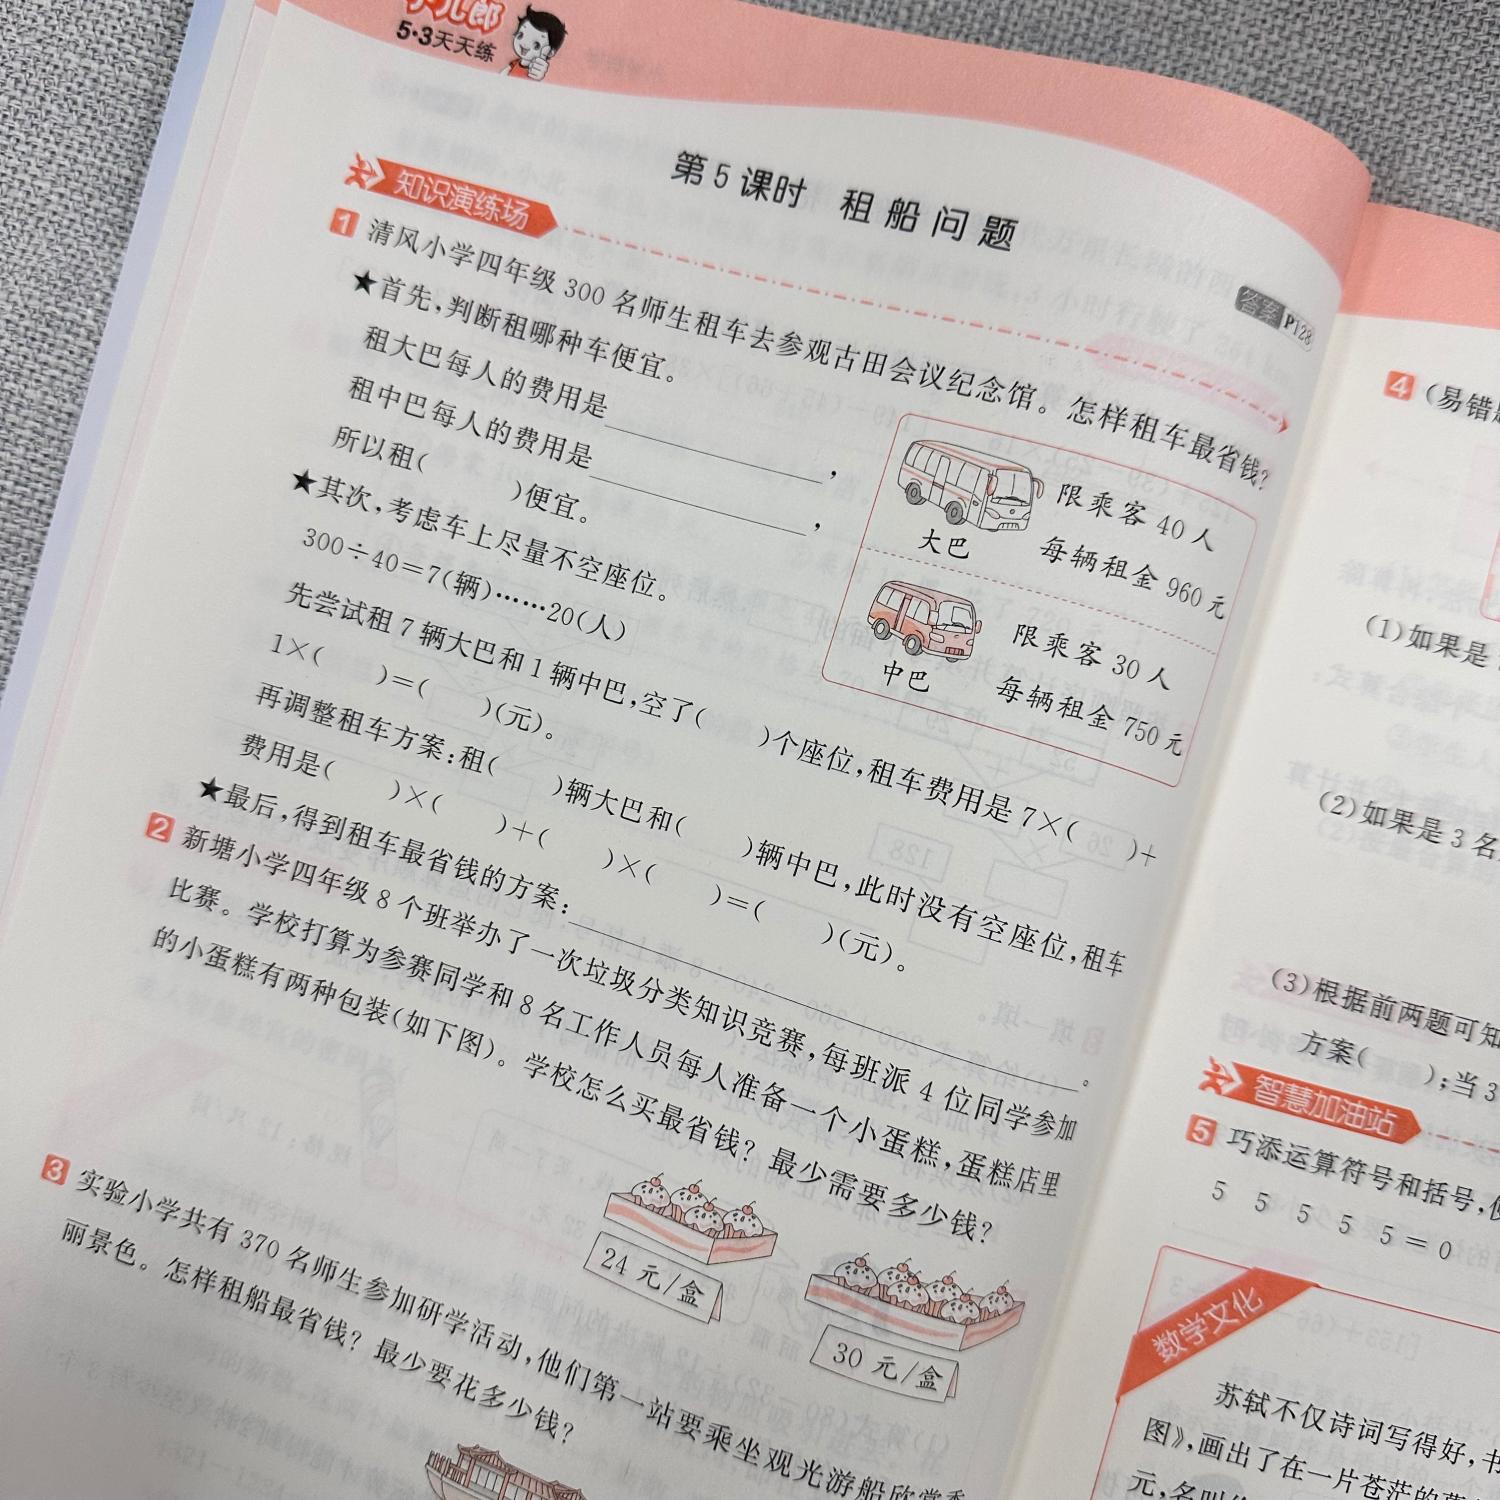 5·3天天练
第5课时 租船问题
知识演练场
答案P128
1 清风小学四年级300名师生租车去参观古田会议纪念馆。怎样租车最省钱?
★首先,判断租哪种车便宜。
租大巴每人的费用是,
租中巴每人的费用是,
所以租( )便宜。
限乘客40人
大巴 每辆租金960元
限乘客30人
中巴 每辆租金750元
★其次,考虑车上尽量不空座位。
300÷40=7(辆)……20(人)
先尝试租7辆大巴和1辆中巴,空了( )个座位,租车费用是7×( )+
1×( )=( )(元)。
再调整租车方案:租( )辆大巴和( )辆中巴,此时没有空座位,租车
费用是( )×( )+( )×( )=( )(元)。
★最后,得到租车最省钱的方案:。
2 新塘小学四年级8个班举办了一次垃圾分类知识竞赛,每班派4位同学参加
比赛。学校打算为参赛同学和8名工作人员每人准备一个小蛋糕,蛋糕店里
的小蛋糕有两种包装(如下图)。学校怎么买最省钱?最少需要多少钱?
24元/盒
30元/盒
3 实验小学共有370名师生参加研学活动,他们第一站要乘坐观光游船欣赏秀
丽景色。怎样租船最省钱?最少要花多少钱?
4 (易错
(1)如果是
(2)如果是3名
(3)根据前两题可知
方案( );当3
智慧加油站
5 巧添运算符号和括号,使
5 5 5 5 5=0
数学文化
苏轼不仅诗词写得好,书
图》,画出了在一片苍茫的